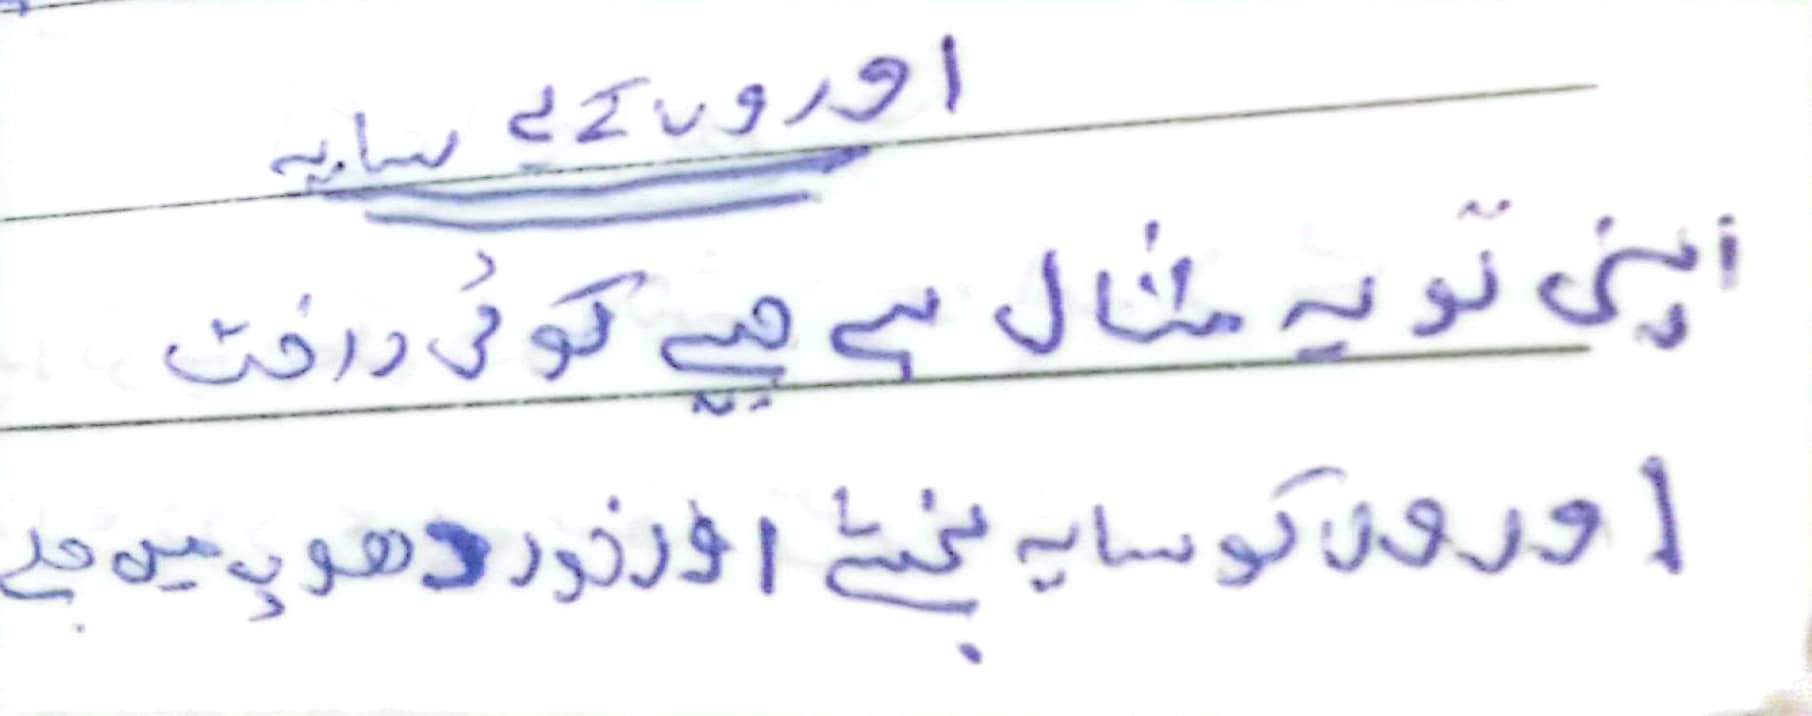 اوروں کے لیے سایہ
اپنی تو یہ مثال ہے جیسے کوئی درخت
اوروں کو سایہ بخشے اور خود دھوپ میں جلے